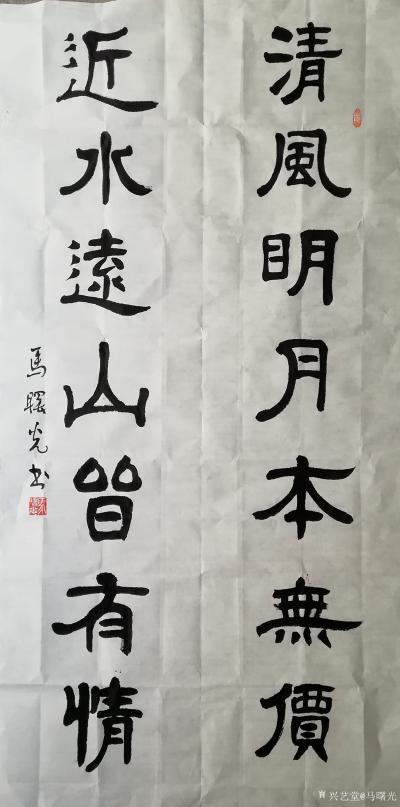 清風明月本無價
近水遠山皆有情
馬曙光书
兴艺堂@马曙光